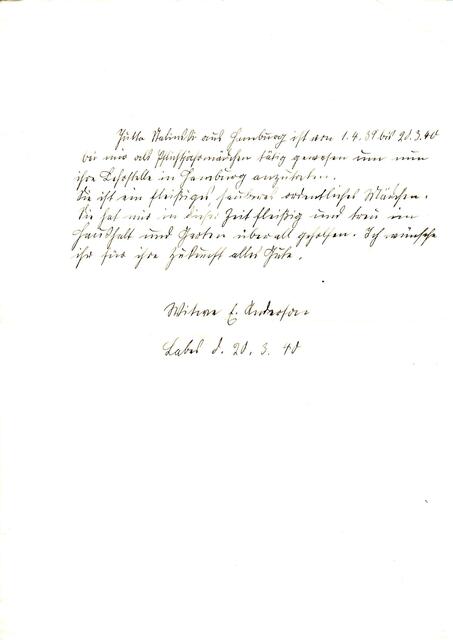 Jutta aus Hamburg ist von 1.4.39 bis 20.3.40
bei mir als Pflichtjahrmädchen tätig gewesen um nun
ihre Lehrstelle in Hamburg anzutreten.
Sie ist ein fleißiges, sauberes ordentliches Mädchen.
Sie hat mir in dieser Zeit fleißig und treu im
Haushalt und Garten überall geholfen. Ich wünsche
ihr für ihre Zukunft alles Gute.
Witwe E. Anderson
Labes d. 20. 3. 40